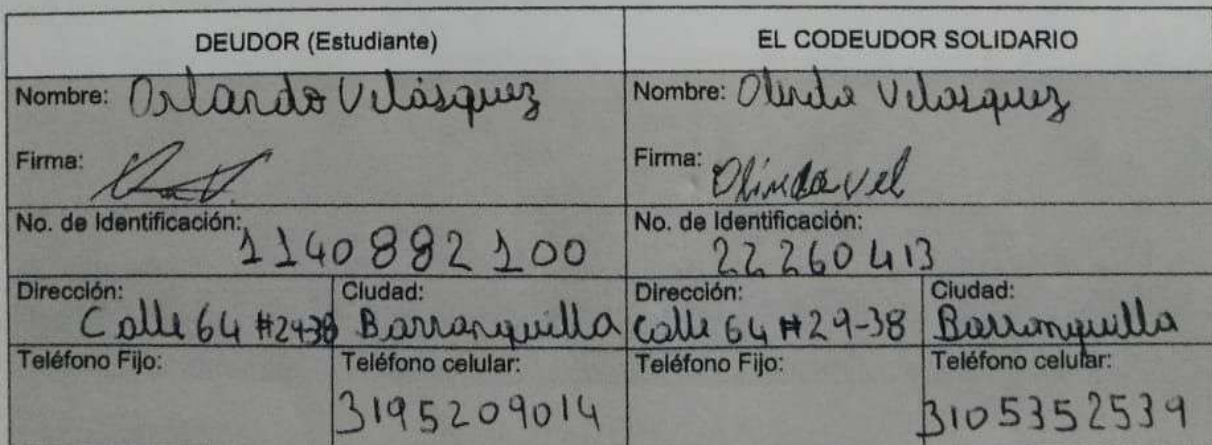 DEUDOR (Estudiante)
EL CODEUDOR SOLIDARIO
Nombre: Orlando Velásquez
Nombre: Olinda Velasquez
Firma:
Firma: Olinda Vel
No. de Identificación: 1140882100
No. de Identificación: 22260413
Dirección: Calle 64 #29-38
Ciudad: Barranquilla
Dirección: Calle 64 #29-38
Ciudad: Barranquilla
Teléfono Fijo:
Teléfono celular: 3195209014
Teléfono Fijo:
Teléfono celular: 3105352539